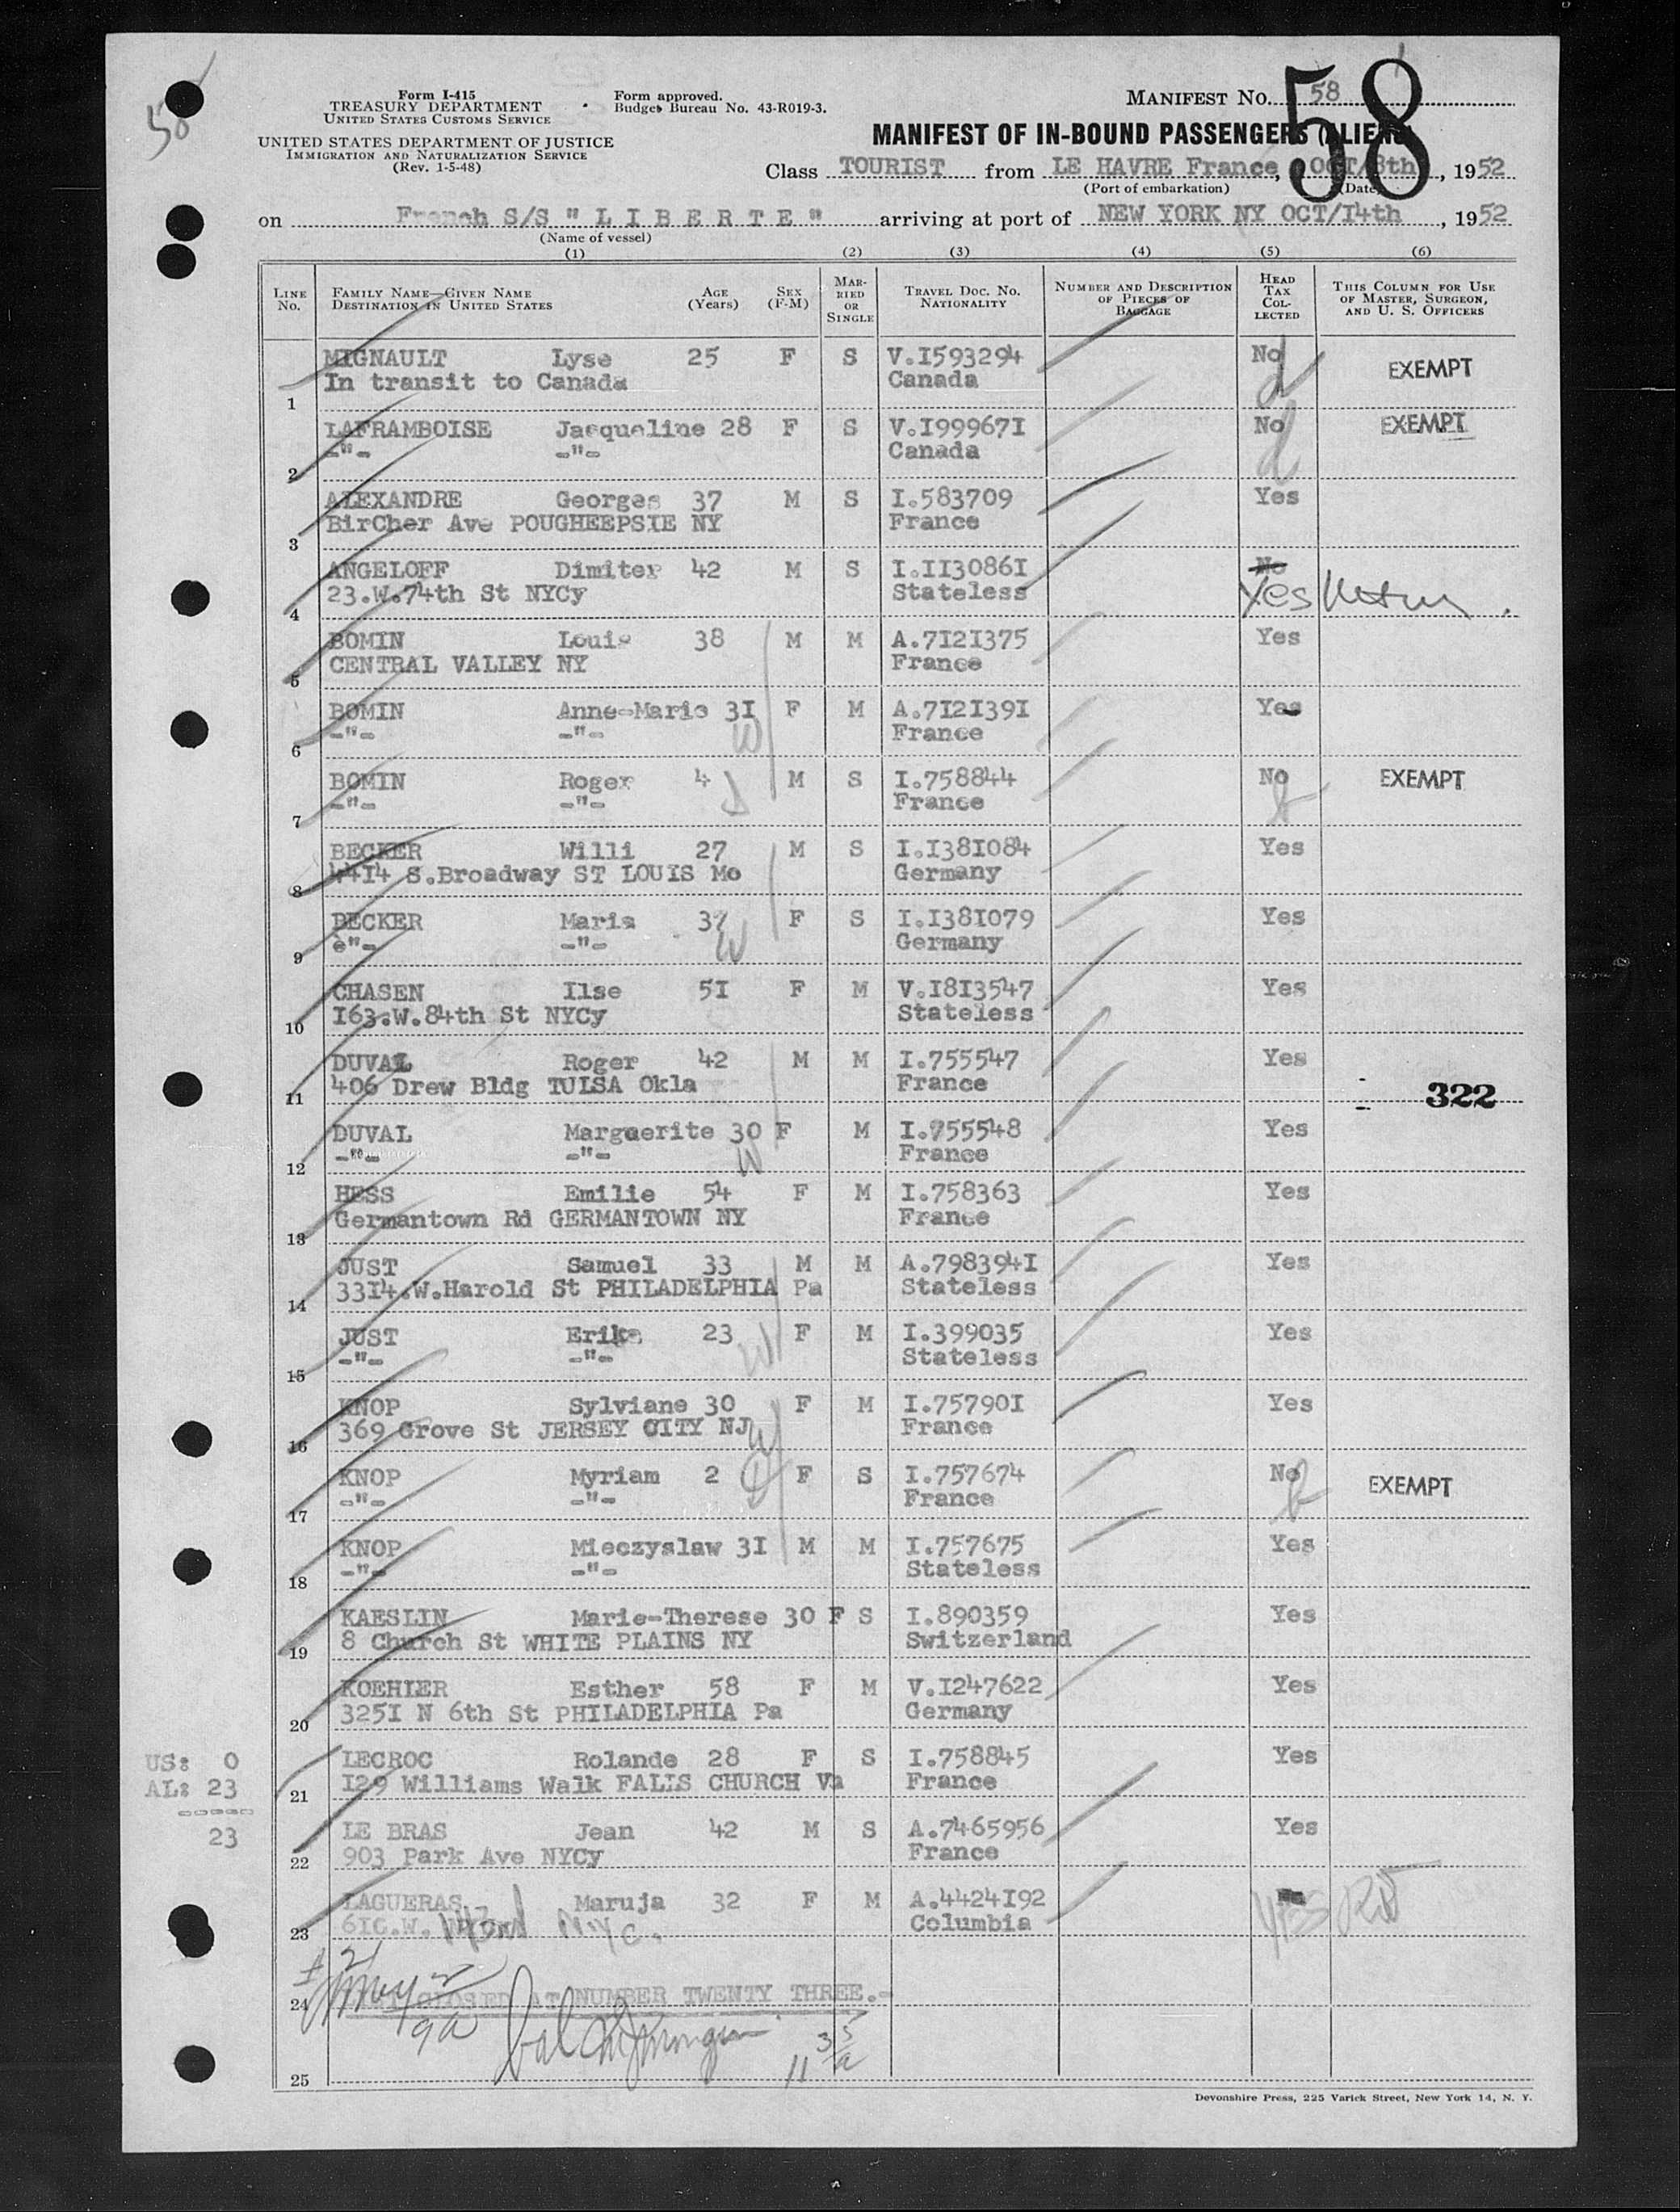 58
Form I-415
TREASURY DEPARTMENT
UNITED STATES CUSTOMS SERVICE
UNITED STATES DEPARTMENT OF JUSTICE
IMMIGRATION AND NATURALIZATION SERVICE
(Rev. 1-5-48)
Form approved.
Budget Bureau No. 43-R019-3.
MANIFEST NO. 58
58
MANIFEST OF IN-BOUND PASSENGERS (ALIENS)
Class TOURIST from LE HAVRE France, OCT/8th, 1952
(Port of embarkation) (Date)
on French S/S "LIBERTE" arriving at port of NEW YORK NY OCT/I4th, 1952
(Name of vessel)
(1) (2) (3) (4) (5) (6)
LINE NO. FAMILY NAME—GIVEN NAME DESTINATION IN UNITED STATES AGE (Years) SEX (F-M) MARRIED OR SINGLE TRAVEL DOC. NO. NATIONALITY NUMBER AND DESCRIPTION OF PIECES OF BAGGAGE HEAD TAX COLLECTED THIS COLUMN FOR USE OF MASTER, SURGEON, AND U. S. OFFICERS
MIGNAULT Lyse 25 F S V.I593294 No EXEMPT
In transit to Canada Canada
1
LAFRAMBOISE Jacqueline 28 F S V.I99967I No EXEMPT
-"- -"- Canada
2
ALEXANDRE Georges 37 M S I.583709 Yes
BirCher Ave POUGHEEPSIE NY France
3
ANGELOFF Dimiter 42 M S I.II3086I No
23.W.74th St NYCy Stateless Yes
4
BOMIN Louis 38 M M A.7I2I375 Yes
CENTRAL VALLEY NY France
5
BOMIN Anne-Marie 3I F M A.7I2I39I Yes
-"- -"- France
6
BOMIN Roger 4 M S I.758844 No EXEMPT
-"- -"- France
7
BECKER Willi 27 M S I.I38I084 Yes
44I4 S.Broadway ST LOUIS Mo Germany
8
BECKER Maria 37 F S I.I38I079 Yes
è"- -"- Germany
9
CHASEN Ilse 5I F M V.I8I3547 Yes
I63.W.84th St NYCy Stateless
10
DUVAL Roger 42 M M I.755547 Yes
406 Drew Bldg TULSA Okla France
11 322
DUVAL Marguerite 30 F M I.755548 Yes
-"- -"- France
12
HESS Emilie 54 F M I.758363 Yes
Germantown Rd GERMANTOWN NY France
13
JUST Samuel 33 M M A.798394I Yes
33I4.W.Harold St PHILADELPHIA Pa Stateless
14
JUST Erika 23 F M I.399035 Yes
-"- -"- Stateless
15
KNOP Sylviane 30 F M I.75790I Yes
369 Grove St JERSEY CITY NJ France
16
KNOP Myriam 2 F S I.757674 No EXEMPT
-"- -"- France
17
KNOP Mieczyslaw 3I M M I.757675 Yes
-"- -"- Stateless
18
KAESLIN Marie-Therese 30 F S I.890359 Yes
8 Church St WHITE PLAINS NY Switzerland
19
KOEHLER Esther 58 F M V.I247622 Yes
325I N 6th St PHILADELPHIA Pa Germany
20
US: 0
AL: 23
-----
23
LECROC Rolande 28 F S I.758845 Yes
I29 Williams Walk FALLS CHURCH Va France
21
LE BRAS Jean 42 M S A.7465956 Yes
903 Park Ave NYCy France
22
LAGUERAS Maruja 32 F M A.4424I92 YES
6IC.W. 143rd NYC. Columbia
23
CLOSED AT NUMBER TWENTY THREE.-
24
25
Devonshire Press, 225 Varick Street, New York 14, N. Y.